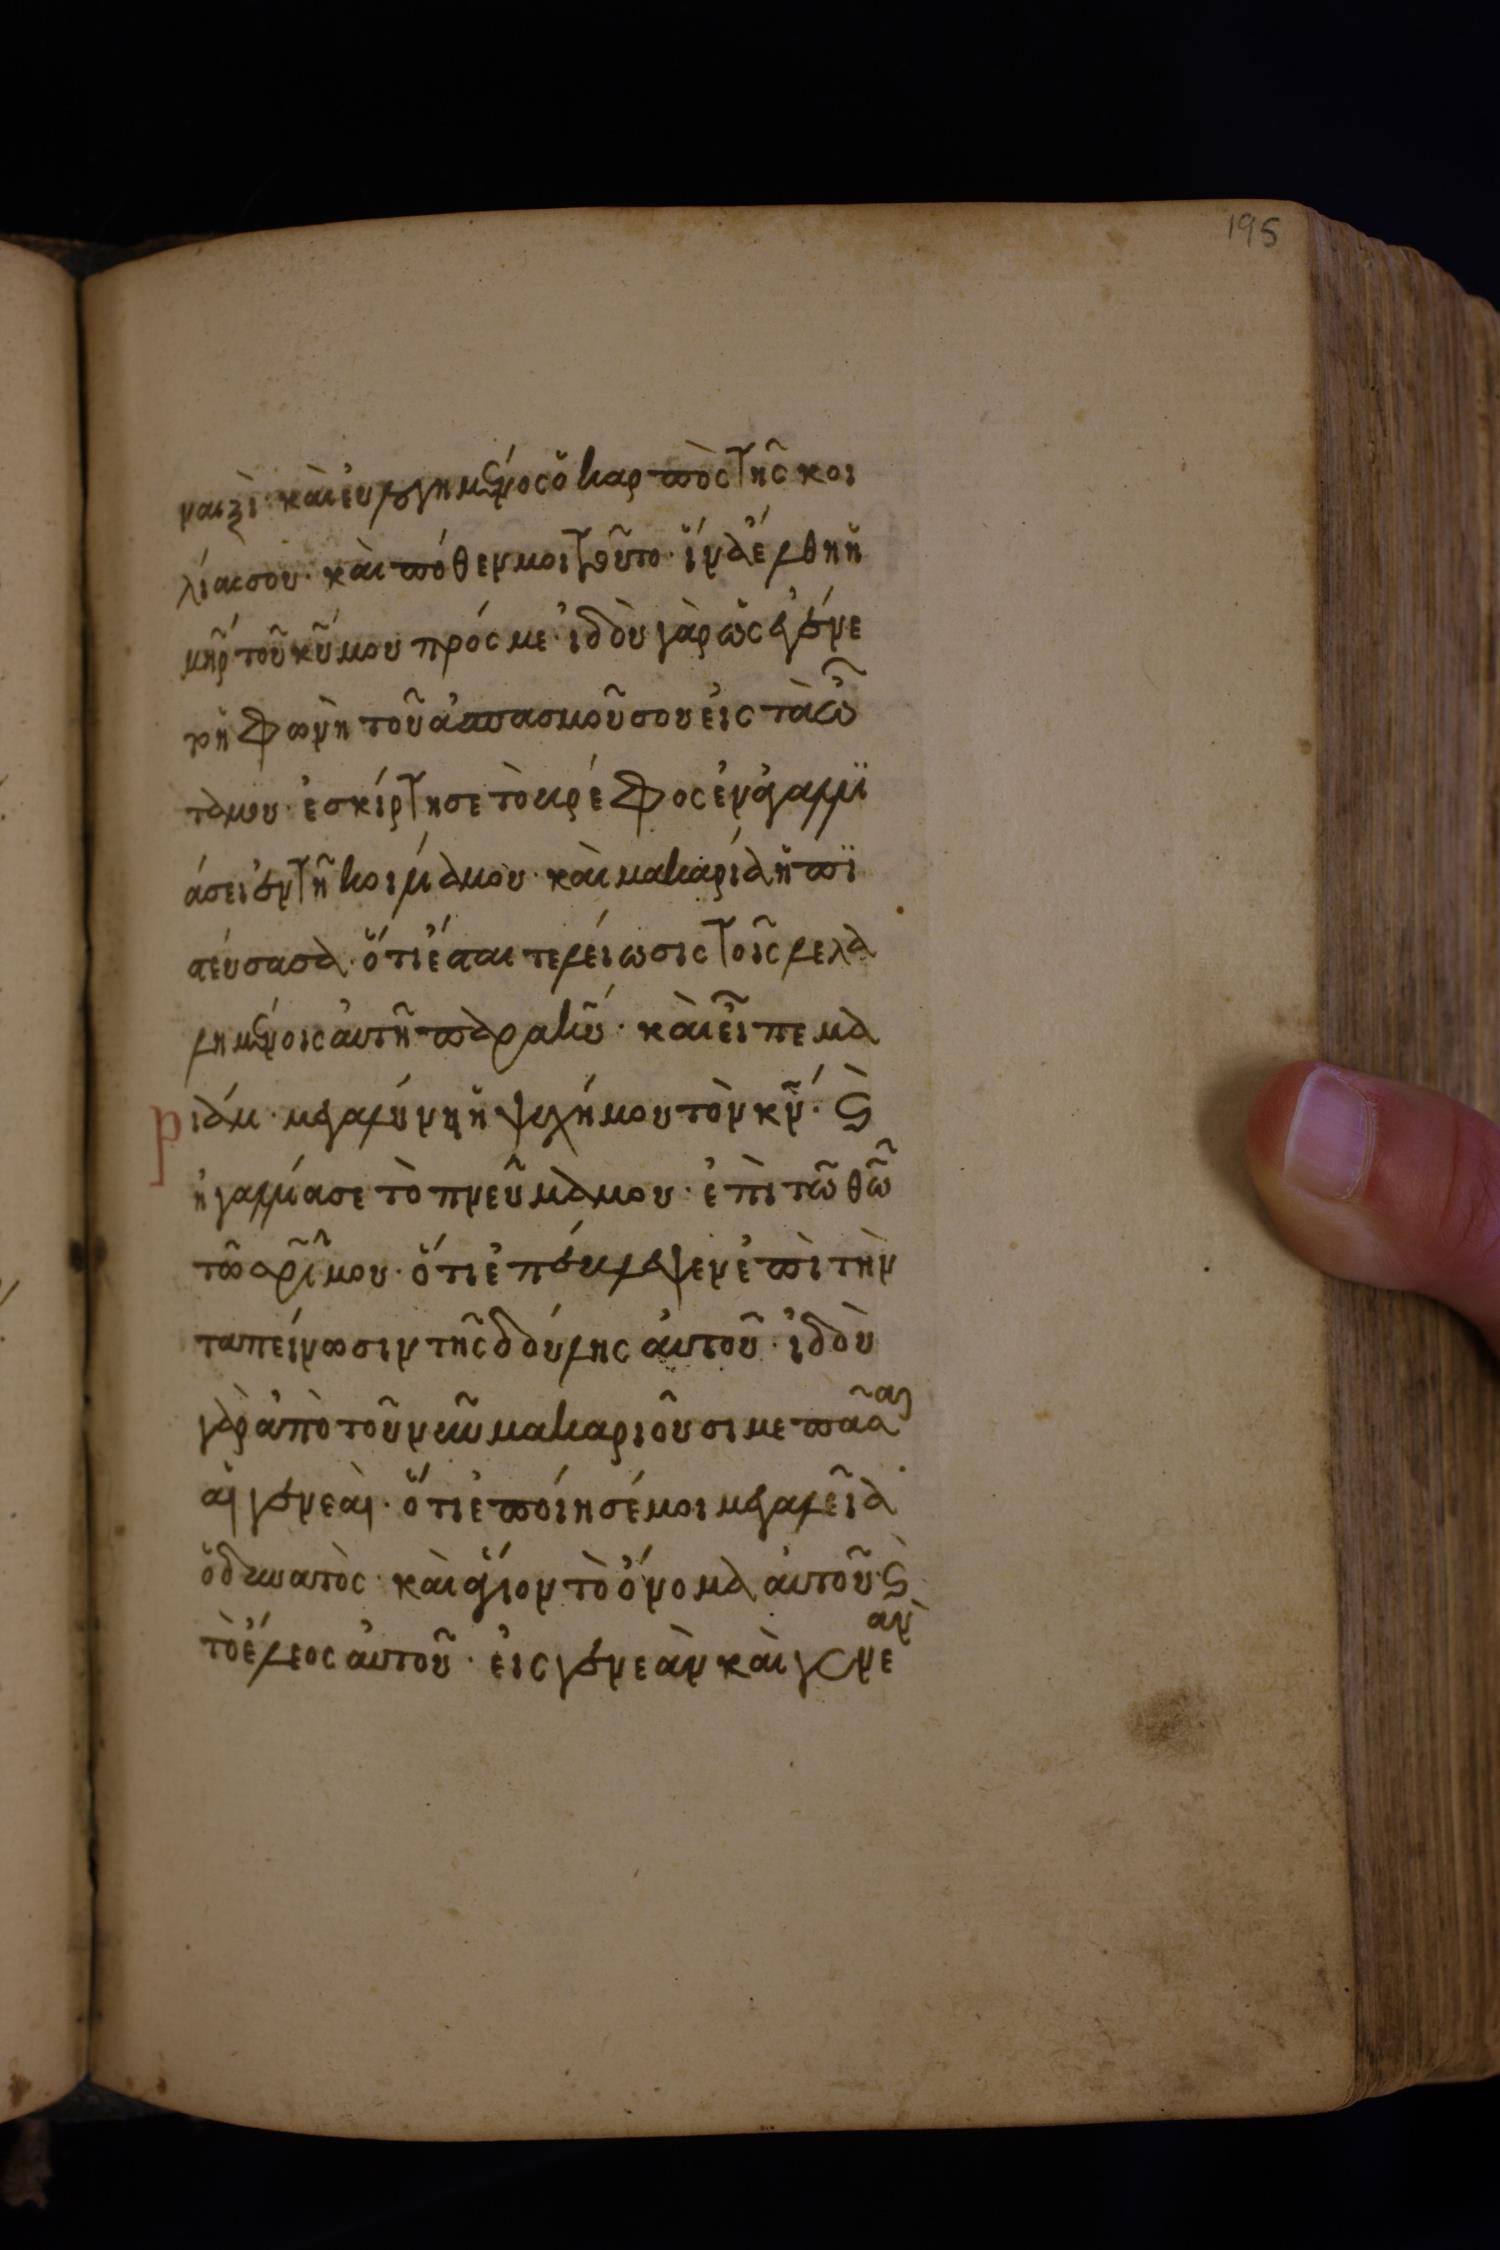 195
ναιξὶ· καὶ εὐλογημένος ὁ καρπὸς τῆς κοι
λίας σου· καὶ πόθεν μοι τοῦτο· ἵνα ἔλθῃ ἡ
μηρ τοῦ κυ μου πρός με· ἰδοὺ γὰρ ὡς ἐγένε
το ἡ φωνὴ τοῦ ἀσπασμοῦ σου εἰς τὰ ὦ
τα μου· ἐσκίρτησε τὸ βρέφος ἐν ἀγαλλϊ
άσει ἐν τῇ κοιλία μου· καὶ μακαρία ἡ πι
στεύσασα· ὅτι ἔσται τελείωσις τοῖς λελα
λημένοις αὐτῇ παρα κυ· καὶ εἶπε μα
ριάμ· μεγαλύνει ἡ ψυχή μου τὸν κν· ϛ
ἠγαλλίασε τὸ πνεῦμα μου· ἐπὶ τῶ θῶ
τῶ σρι μου· ὅτι ἐπέβλεψεν ἐπὶ τὴν
ταπείνωσιν τῆς δούλης αὐτοῦ· ἰδοὺ
γὰρ ἀπὸ τοῦ νῦν μακαριοῦσι με πᾶσαι
αἱ γενεαὶ· ὅτι ἐποίησέ μοι μεγαλεῖα
ὁ δυνατὸς· καὶ ἅγιον τὸ ὄνομα αὐτοῦ· ϛ
τὸ ἔλεος αὐτοῦ· εἰς γενεὰν καὶ γενεὰν